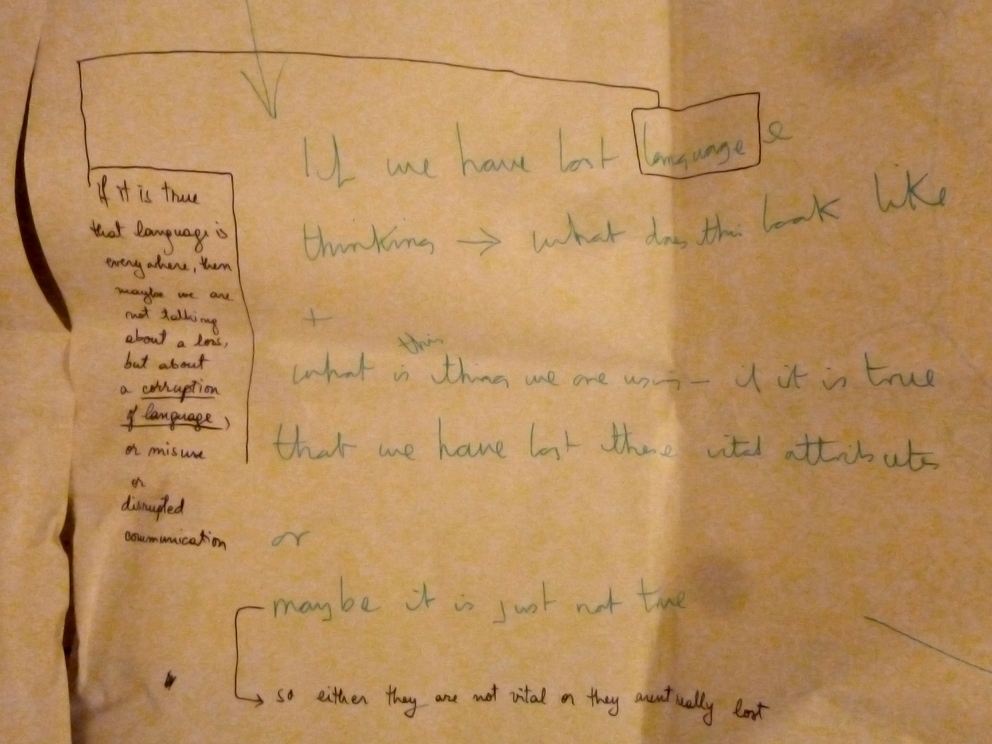 If we have lost language &
thinking → what does this look like
+
what is this thing we are using – if it is true
that we have lost these vital attributes
or
maybe it is just not true
so either they are not vital or they aren't really lost
If it is true
that language is
everywhere, then
maybe we are
not talking
about a loss,
but about
a corruption
of language,
or misuse
or
disrupted
communication